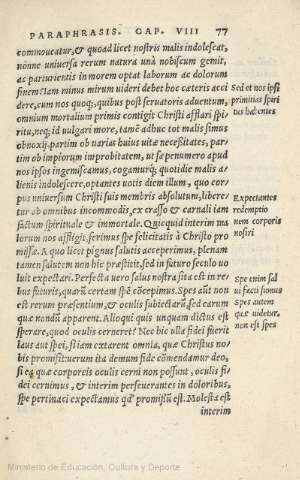 PARAPHRASIS. CAP. VIII 77
commoueatur, & quoad licet nostris malis indolescat,
nonne uniuersa rerum natura unà nobiscum gemit,
ac parturientis in morem optat laborum ac dolorum
finem? Iam minus mirum uideri debet hoc cæteris acci
dere, cum nos quoq;, quibus post seruatoris aduentum,
omnium mortalium primis contigit Christi afflari spi
ritu, neq; id uulgari more, tamē adhuc tot malis simus
obnoxij. partim ob uarias huius uitæ necessitates, par
tim ob impiorum improbitatem, ut sæpenumero apud
nos ipsos ingemiscamus, cogamurq; quotidie malis a-
lienis indolescere, optantes uotis diem illum, quo cor-
pus uniuersum Christi suis membris absolutum, libere
tur ab omnibus incommodis, ex crasso & carnali iam
factum spirituale & immortale. Quicquid interim ma
lorum nos affligit, ferimus spe felicitatis à Christo pro
missæ. A quo licet pignus salutis acceperimus, plenam
tamen salutem non hic præstitit, sed in futuro seculo uo
luit expectari. Perfecta uero salus nostra sita est in re-
bus futuris, quarū certam spē cōcepimus. Spes aūt non
est rerum præsentium, & oculis subiectarū, sed earum
quæ nondū apparent. Alioqui quis unquam dictus est
sperare, quod oculis cerneret? Nec hic ulla fidei fuerit
laus aut spei, si iam extarent omnia, quæ Christus no-
bis promisit: uerum ita demum fide cōmendamur deo,
si ea quæ corporeis oculis cerni non possunt, oculis fi-
dei cernimus, & interim perseuerantes in doloribus,
spe pertinaci expectamus qd' promissū est. Molesta est
interim
Sed et nos ipsi
primitias spiri
tus habentes
Expectantes
redemptio
nem corporis
nostri
Spe enim sal
ui facti sumus
Spes autem
quæ uidetur
non est spes
Ministerio de Educación, Cultura y Deporte